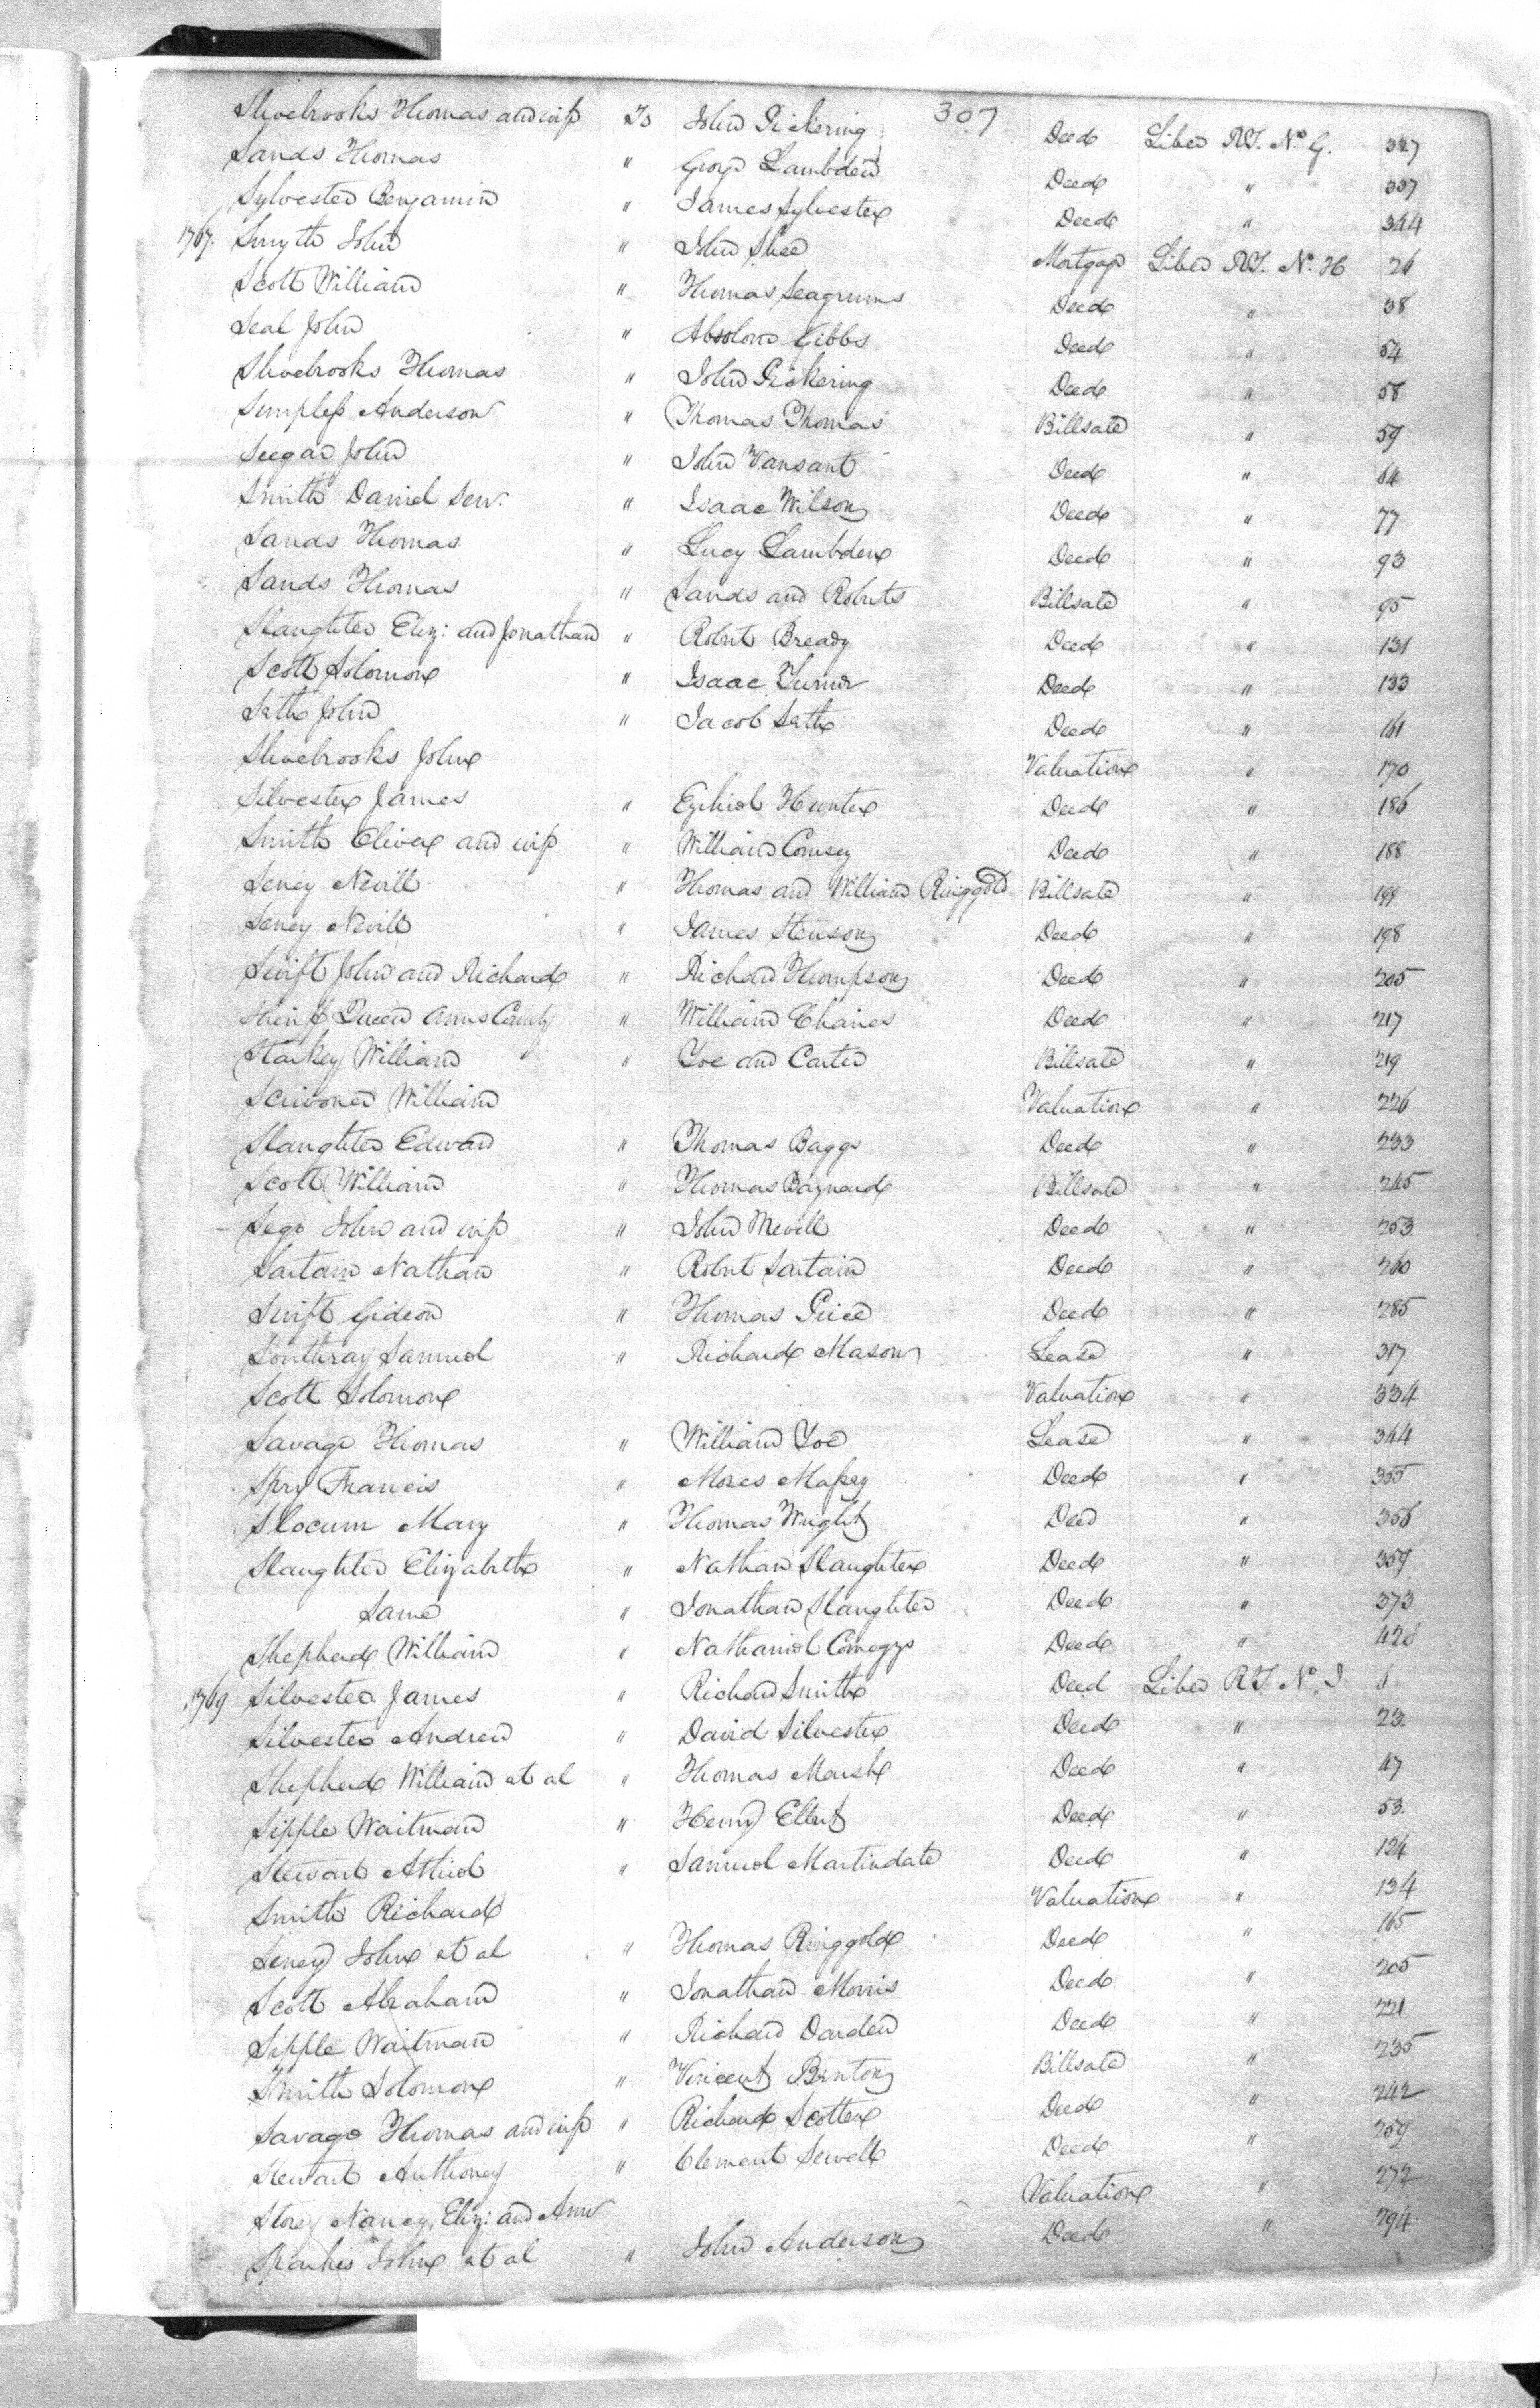 307
Shoebrooks Thomas and wife To John Pickering Deed Liber RT. No G. 327
Sands Thomas " George Lambden Deed " 337
Sylvester Benjamin " James Sylvester Deed " 344
1767. Smyth John " John Shee Mortgage Liber RT. No. H 26
Scott William " Thomas Seagrums Deed " 38
Seal John " Absolom Gibbs Deed " 54
Shoebrooks Thomas " John Pickering Deed " 58
Sumpless Anderson " Thomas Thomas Billsale " 59
Seegar John " John Vansant Deed " 64
Smith Daniel Senr. " Isaac Wilson Deed " 77
Sands Thomas " Lucy Lambden Deed " 93
Sands Thomas " Sands and Roberts Billsale " 95
Slaughter Eliz: and Jonathan " Robert Bready Deed " 131
Scott Solomon " Isaac Turner Deed " 133
Seth John " Jacob Seth Deed " 161
Shoebrooks John Valuation " 170
Silvester James " Ezekiel Hunter Deed " 186
Smith Oliver and wife " William Comsey Deed " 188
Seney Nevill " Thomas and William Ringgold Billsale "
Seney Nevill " James Stenson Deed " 198
Swift John and Richard " Richard Thompson Deed " 205
Sheriff Queen Anns County " William Chaires Deed " 217
Starkey William " Yoe and Carter Billsale " 219
Scrivoner William Valuation " 226
Slaughter Edward " Thomas Baggs Deed " 233
Scott William " Thomas Baynard Billsale " 245
Sego John and wife " John Mevill Deed " 253
Sartain Nathan " Robert Sartain Deed " 260
Swift Gideon " Thomas Price Deed " 285
Southray Samuel " Richard Mason Lease " 317
Scott Solomon Valuation " 334
Savage Thomas " William Yoe Lease " 344
Spry Francis " Moses Massey Deed " 355
Slocum Mary " Thomas Wright Deed " 356
Slaughter Elizabeth " Nathan Slaughter Deed " 359
Same " Jonathan Slaughter Deed " 373
Shepherd William " Nathaniel Comegys Deed "
1769 Silvester James " Richard Smith Deed Liber RT. No. I 6
Silvester Andrew " David Silvester Deed " 23.
Shepherd William et al " Thomas Marsh Deed " 47
Sipple Waitman " Henry Elbert Deed " 53.
Stewart Athiel " Samuel Martindale Deed " 124
Smith Richard Valuation " 134
Seney John et al " Thomas Ringgold Deed " 165
Scott Abraham " Jonathan Morris Deed " 205
Sipple Waitman " Richard Darden Deed " 221
Smith Solomon " Vincent Benton Billsale " 235
Savage Thomas and wife " Richard Scotten Deed " 242
Stewart Anthoney " Clement Sewell Deed " 259
Storey Nancy, Eliz: and Ann Valuation " 272
Sparkes John et al " John Anderson Deed " 294